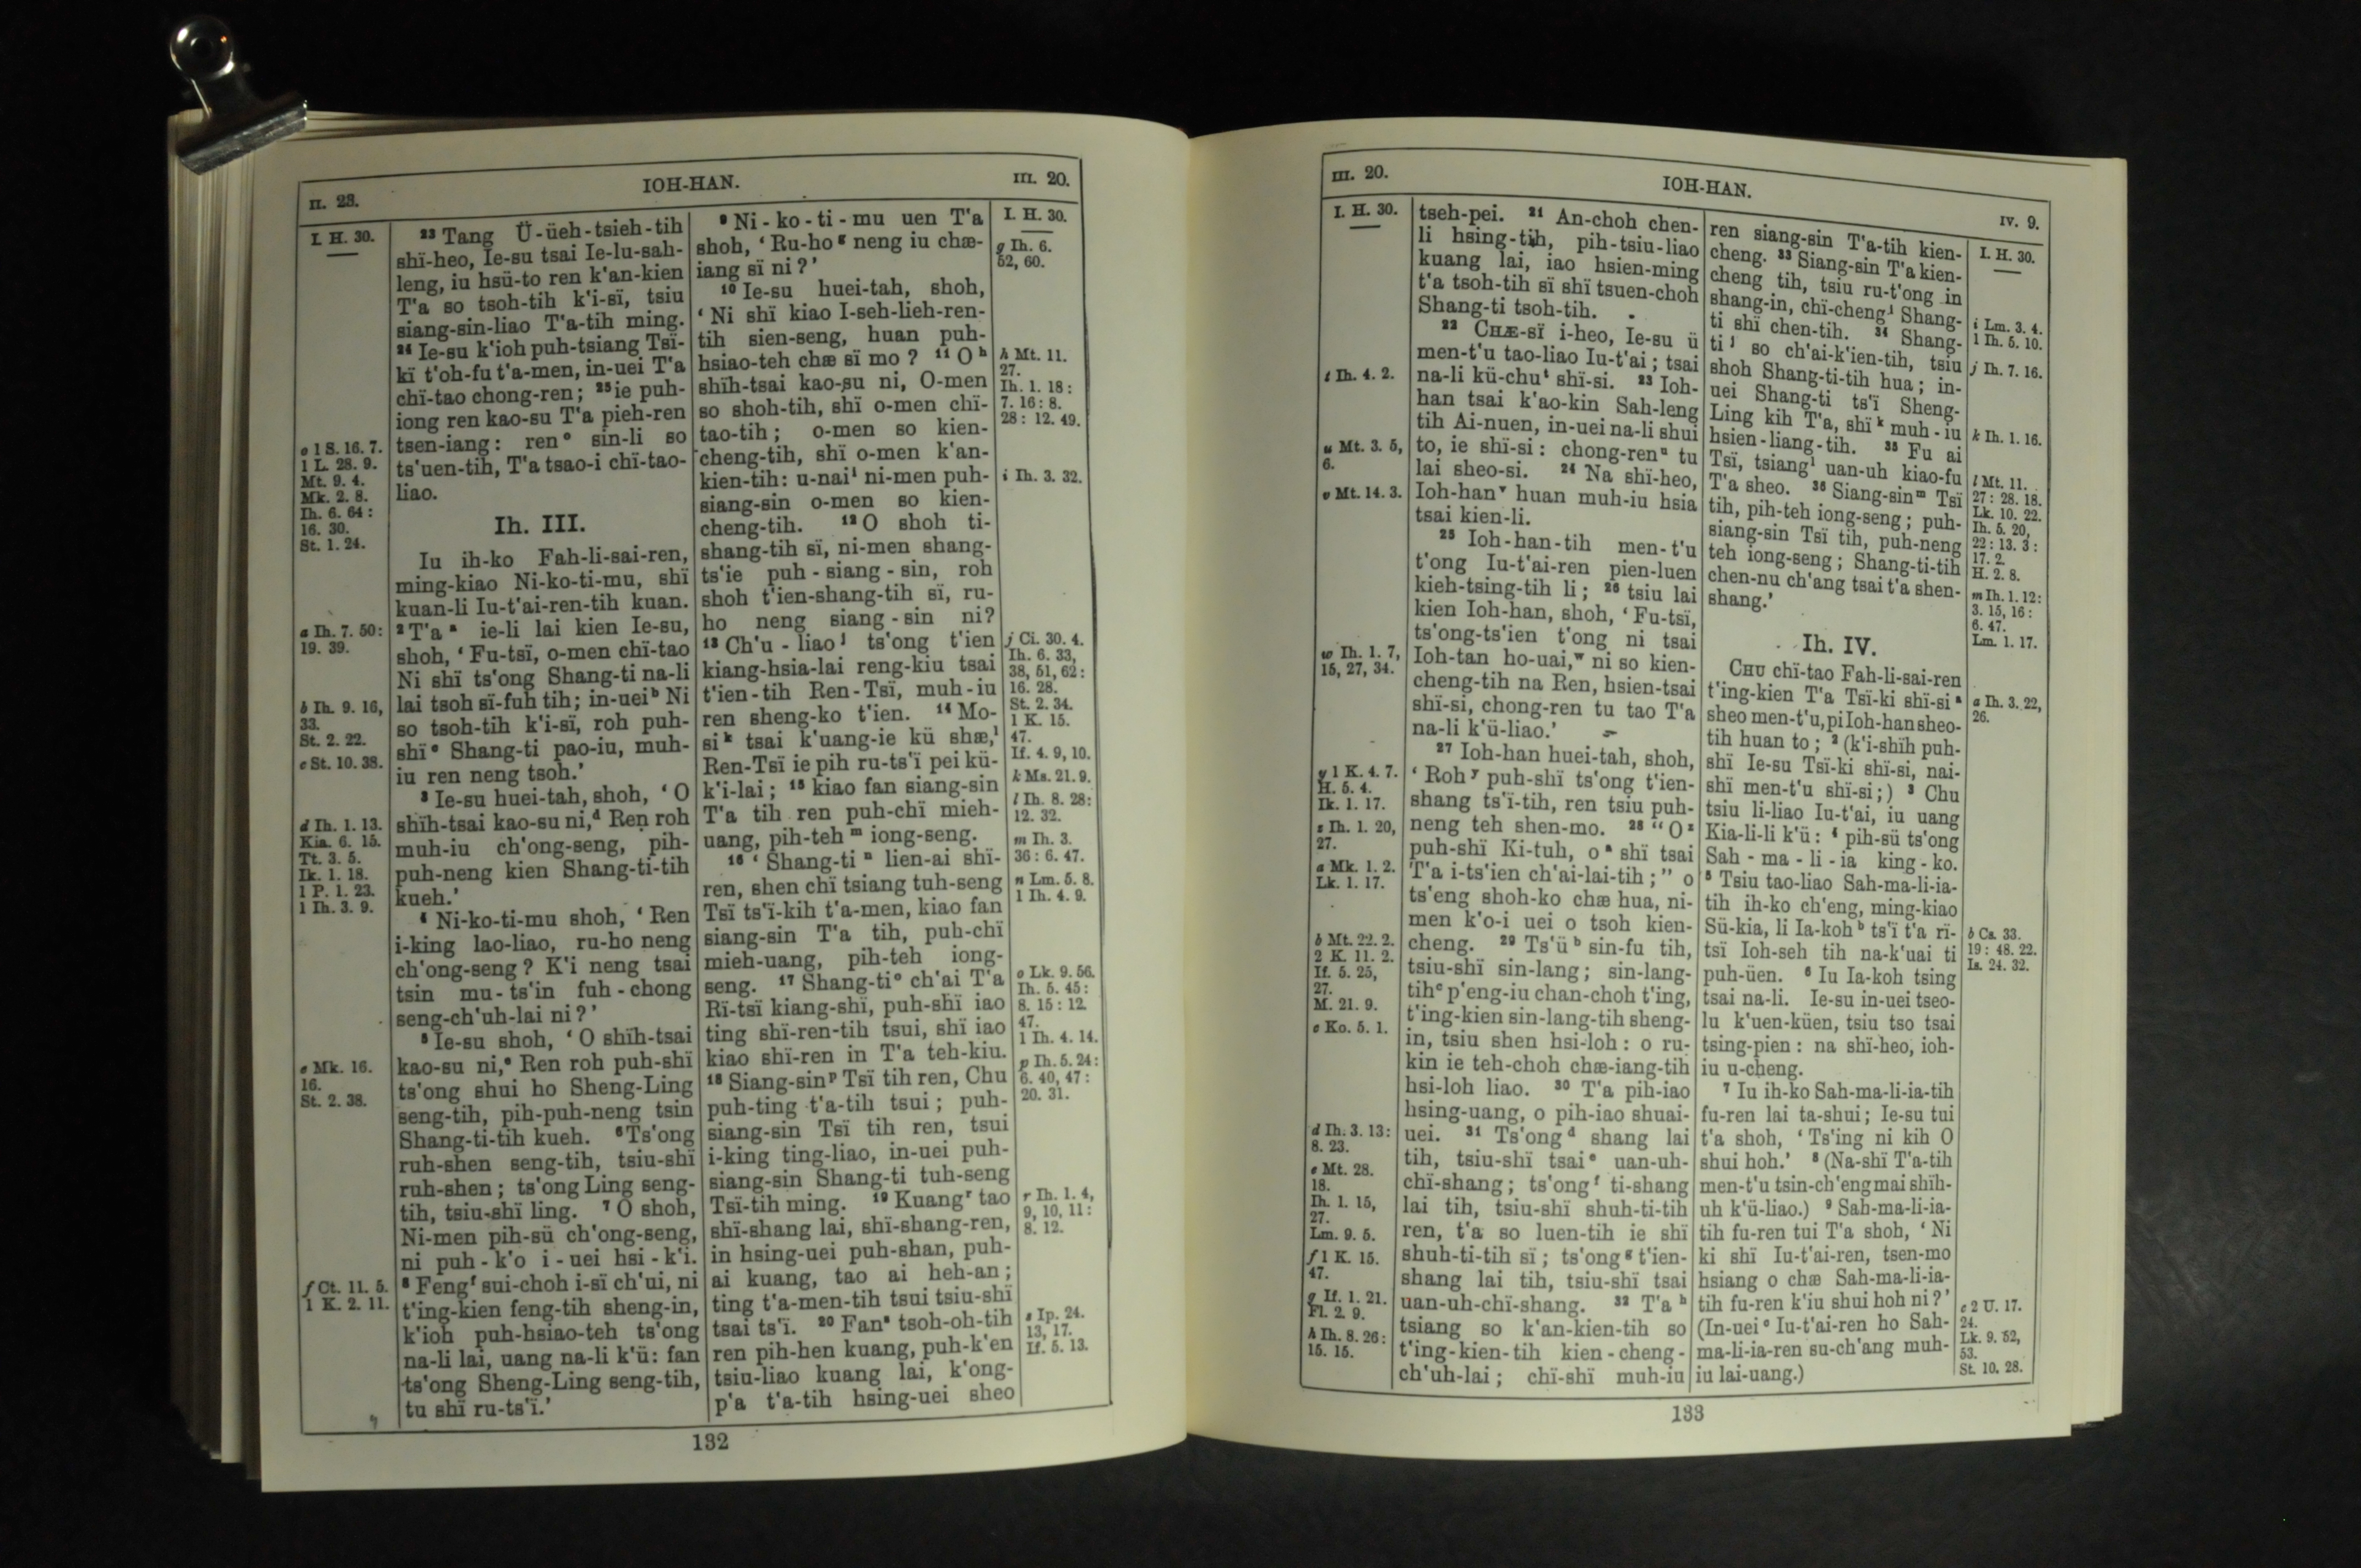 II. 23.
IOH-HAN.
III. 20.
I. H. 30.
o 1 S. 16. 7.
1 L. 28. 9.
Mt. 9. 4.
Mk. 2. 8.
Ih. 6. 64 :
16. 30.
St. 1. 24.
a Ih. 7. 50:
19. 39.
b Ih. 9. 16,
33.
St. 2. 22.
c St. 10. 38.
d Ih. 1. 13.
Kia. 6. 15.
Tt. 3. 5.
Ik. 1. 18.
1 P. 1. 23.
1 Ih. 3. 9.
e Mk. 16.
16.
St. 2. 38.
f Ct. 11. 5.
1 K. 2. 11.
23 Tang Ü-üeh-tsieh-tih
shï-heo, Ie-su tsai Ie-lu-sah-
leng, iu hsü-to ren k'an-kien
T'a so tsoh-tih k'i-sï, tsiu
siang-sin-liao T'a-tih ming.
24 Ie-su k'ioh puh-tsiang Tsï-
kï t'oh-fu t'a-men, in-uei T'a
chï-tao chong-ren; 25 ie puh-
iong ren kao-su T'a pieh-ren
tsen-iang: ren o sin-li so
ts'uen-tih, T'a tsao-i chï-tao-
liao.
Ih. III.
Iu ih-ko Fah-li-sai-ren,
ming-kiao Ni-ko-ti-mu, shï
kuan-li Iu-t'ai-ren-tih kuan.
2 T'a a ie-li lai kien Ie-su,
shoh, 'Fu-tsï, o-men chï-tao
Ni shï ts'ong Shang-ti na-li
lai tsoh sï-fuh tih; in-uei b Ni
so tsoh-tih k'i-sï, roh puh-
shï c Shang-ti pao-iu, muh-
iu ren neng tsoh.'
3 Ie-su huei-tah, shoh, 'O
shïh-tsai kao-su ni, d Ren roh
muh-iu ch'ong-seng, pih-
puh-neng kien Shang-ti-tih
kueh.'
4 Ni-ko-ti-mu shoh, 'Ren
i-king lao-liao, ru-ho neng
ch'ong-seng? K'i neng tsai
tsin mu-ts'in fuh-chong
seng-ch'uh-lai ni?'
5 Ie-su shoh, 'O shïh-tsai
kao-su ni, e Ren roh puh-shï
ts'ong shui ho Sheng-Ling
seng-tih, pih-puh-neng tsin
Shang-ti-tih kueh. 6 Ts'ong
ruh-shen seng-tih, tsiu-shï
ruh-shen; ts'ong Ling seng-
tih, tsiu-shï ling. 7 O shoh,
Ni-men pih-sü ch'ong-seng,
ni puh-k'o i-uei hsi-k'i.
8 Feng f sui-choh i-sï ch'ui, ni
t'ing-kien feng-tih sheng-in,
k'ioh puh-hsiao-teh ts'ong
na-li lai, uang na-li k'ü: fan
ts'ong Sheng-Ling seng-tih,
tu shï ru-ts'ï.'
9 Ni-ko-ti-mu uen T'a
shoh, 'Ru-ho g neng iu chæ-
iang sï ni?'
10 Ie-su huei-tah, shoh,
'Ni shï kiao I-seh-lieh-ren-
tih sien-seng, huan puh-
hsiao-teh chæ sï mo? 11 O h
shïh-tsai kao-su ni, O-men
so shoh-tih, shï o-men chï-
tao-tih; o-men so kien-
cheng-tih, shï o-men k'an-
kien-tih: u-nai i ni-men puh-
siang-sin o-men so kien-
cheng-tih. 12 O shoh ti-
shang-tih sï, ni-men shang-
ts'ie puh-siang-sin, roh
shoh t'ien-shang-tih sï, ru-
ho neng siang-sin ni?
13 Ch'u-liao j ts'ong t'ien
kiang-hsia-lai reng-kiu tsai
t'ien-tih Ren-Tsï, muh-iu
ren sheng-ko t'ien. 14 Mo-
si k tsai k'uang-ie kü shæ, l
Ren-Tsï ie pih ru-ts'ï pei kü-
k'i-lai; 15 kiao fan siang-sin
T'a tih ren puh-chï mieh-
uang, pih-teh m iong-seng.
16 'Shang-ti n lien-ai shï-
ren, shen chï tsiang tuh-seng
Tsï ts'ï-kih t'a-men, kiao fan
siang-sin T'a tih, puh-chï
mieh-uang, pih-teh iong-
seng. 17 Shang-ti o ch'ai T'a
Rï-tsï kiang-shï, puh-shï iao
ting shï-ren-tih tsui, shï iao
kiao shï-ren in T'a teh-kiu.
18 Siang-sin p Tsï tih ren, Chu
puh-ting t'a-tih tsui; puh-
siang-sin Tsï tih ren, tsui
i-king ting-liao, in-uei puh-
siang-sin Shang-ti tuh-seng
Tsï-tih ming. 19 Kuang r tao
shï-shang lai, shï-shang-ren,
in hsing-uei puh-shan, puh-
ai kuang, tao ai heh-an;
ting t'a-men-tih tsui tsiu-shï
tsai ts'ï. 20 Fan s tsoh-oh-tih
ren pih-hen kuang, puh-k'en
tsiu-liao kuang lai, k'ong-
p'a t'a-tih hsing-uei sheo
I. H. 30.
g Ih. 6.
52, 60.
h Mt. 11.
27.
Ih. 1. 18 :
7. 16 : 8.
28 : 12. 49.
i Ih. 3. 32.
j Ci. 30. 4.
Ih. 6. 33,
38, 51, 62 :
16. 28.
St. 2. 34.
1 K. 15.
47.
If. 4. 9, 10.
k Ms. 21. 9.
l Ih. 8. 28:
12. 32.
m Ih. 3.
36 : 6. 47.
n Lm. 5. 8.
1 Ih. 4. 9.
o Lk. 9. 56.
Ih. 5. 45 :
8. 15 : 12.
47.
1 Ih. 4. 14.
p Ih. 5. 24 :
6. 40, 47 :
20. 31.
r Ih. 1. 4,
9, 10, 11 :
8. 12.
s Ip. 24.
13, 17.
If. 5. 13.
132
III. 20.
IOH-HAN.
IV. 9.
I. H. 30.
t Ih. 4. 2.
u Mt. 3. 5,
6.
v Mt. 14. 3.
w Ih. 1. 7,
15, 27, 34.
y 1 K. 4. 7.
H. 5. 4.
Ik. 1. 17.
z Ih. 1. 20,
27.
a Mk. 1. 2.
Lk. 1. 17.
b Mt. 22. 2.
2 K. 11. 2.
If. 5. 25,
27.
M. 21. 9.
c Ko. 5. 1.
d Ih. 3. 13:
8. 23.
e Mt. 28.
18.
Ih. 1. 15,
27.
Lm. 9. 5.
f 1 K. 15.
47.
g If. 1. 21.
Fl. 2. 9.
h Ih. 8. 26 :
15. 15.
tseh-pei. 21 An-choh chen-
li hsing-tih, pih-tsiu-liao
kuang lai, iao hsien-ming
t'a tsoh-tih sï shï tsuen-choh
Shang-ti tsoh-tih.
22 CHÆ-sï i-heo, Ie-su ü
men-t'u tao-liao Iu-t'ai; tsai
na-li kü-chu t shï-si. 23 Ioh-
han tsai k'ao-kin Sah-leng
tih Ai-nuen, in-uei na-li shui
to, ie shï-si: chong-ren u tu
lai sheo-si. 24 Na shï-heo,
Ioh-han v huan muh-iu hsia
tsai kien-li.
25 Ioh-han-tih men-t'u
t'ong Iu-t'ai-ren pien-luen
kieh-tsing-tih li; 26 tsiu lai
kien Ioh-han, shoh, 'Fu-tsï,
ts'ong-ts'ien t'ong ni tsai
Ioh-tan ho-uai, w ni so kien-
cheng-tih na Ren, hsien-tsai
shï-si, chong-ren tu tao T'a
na-li k'ü-liao.'
27 Ioh-han huei-tah, shoh,
'Roh y puh-shï ts'ong t'ien-
shang ts'ï-tih, ren tsiu puh-
neng teh shen-mo. 28 "O z
puh-shï Ki-tuh, o a shï tsai
T'a i-ts'ien ch'ai-lai-tih;" o
ts'eng shoh-ko chæ hua, ni-
men k'o-i uei o tsoh kien-
cheng. 29 Ts'ü b sin-fu tih,
tsiu-shï sin-lang; sin-lang-
tih c p'eng-iu chan-choh t'ing,
t'ing-kien sin-lang-tih sheng-
in, tsiu shen hsi-loh: o ru-
kin ie teh-choh chæ-iang-tih
hsi-loh liao. 30 T'a pih-iao
hsing-uang, o pih-iao shuai-
uei. 31 Ts'ong d shang lai
tih, tsiu-shï tsai e uan-uh-
chï-shang; ts'ong f ti-shang
lai tih, tsiu-shï shuh-ti-tih
ren, t'a so luen-tih ie shï
shuh-ti-tih sï; ts'ong g t'ien-
shang lai tih, tsiu-shï tsai
uan-uh-chï-shang. 32 T'a h
tsiang so k'an-kien-tih so
t'ing-kien-tih kien-cheng-
ch'uh-lai; chï-shï muh-iu
ren siang-sin T'a-tih kien-
cheng. 33 Siang-sin T'a kien-
cheng tih, tsiu ru-t'ong in
shang-in, chï-cheng i Shang-
ti shï chen-tih. 34 Shang-
ti j so ch'ai-k'ien-tih, tsiu
shoh Shang-ti-tih hua; in-
uei Shang-ti ts'ï Sheng-
Ling kih T'a, shï k muh-iu
hsien-liang-tih. 35 Fu ai
Tsï, tsiang l uan-uh kiao-fu
T'a sheo. 36 Siang-sin m Tsï
tih, pih-teh iong-seng; puh-
siang-sin Tsï tih, puh-neng
teh iong-seng; Shang-ti-tih
chen-nu ch'ang tsai t'a shen-
shang.'
Ih. IV.
CHU chï-tao Fah-li-sai-ren
t'ing-kien T'a Tsï-ki shï-si a
sheo men-t'u, pi Ioh-han sheo-
tih huan to; 2 (k'i-shïh puh-
shï Ie-su Tsï-ki shï-si, nai-
shï men-t'u shï-si;) 3 Chu
tsiu li-liao Iu-t'ai, iu uang
Kia-li-li k'ü: 4 pih-sü ts'ong
Sah-ma-li-ia king-ko.
5 Tsiu tao-liao Sah-ma-li-ia-
tih ih-ko ch'eng, ming-kiao
Sü-kia, li Ia-koh b ts'ï t'a rï-
tsï Ioh-seh tih na-k'uai ti
puh-üen. 6 Iu Ia-koh tsing
tsai na-li. Ie-su in-uei tseo-
lu k'uen-küen, tsiu tso tsai
tsing-pien: na shï-heo, ioh-
iu u-cheng.
7 Iu ih-ko Sah-ma-li-ia-tih
fu-ren lai ta-shui; Ie-su tui
t'a shoh, 'Ts'ing ni kih O
shui hoh.' 8 (Na-shï T'a-tih
men-t'u tsin-ch'eng mai shïh-
uh k'ü-liao.) 9 Sah-ma-li-ia-
tih fu-ren tui T'a shoh, 'Ni
ki shï Iu-t'ai-ren, tsen-mo
hsiang o chæ Sah-ma-li-ia-
tih fu-ren k'iu shui hoh ni?'
(In-uei c Iu-t'ai-ren ho Sah-
ma-li-ia-ren su-ch'ang muh-
iu lai-uang.)
I. H. 30.
i Lm. 3. 4.
1 Ih. 5. 10.
j Ih. 7. 16.
k Ih. 1. 16.
l Mt. 11.
27 : 28. 18.
Lk. 10. 22.
Ih. 5. 20,
22 : 13. 3 :
17. 2.
H. 2. 8.
m Ih. 1. 12 :
3. 15, 16 :
6. 47.
Lm. 1. 17.
a Ih. 3. 22,
26.
b Cs. 33.
19 : 48. 22.
Is. 24. 32.
c 2 U. 17.
24.
Lk. 9. 52,
53.
St. 10. 28.
133